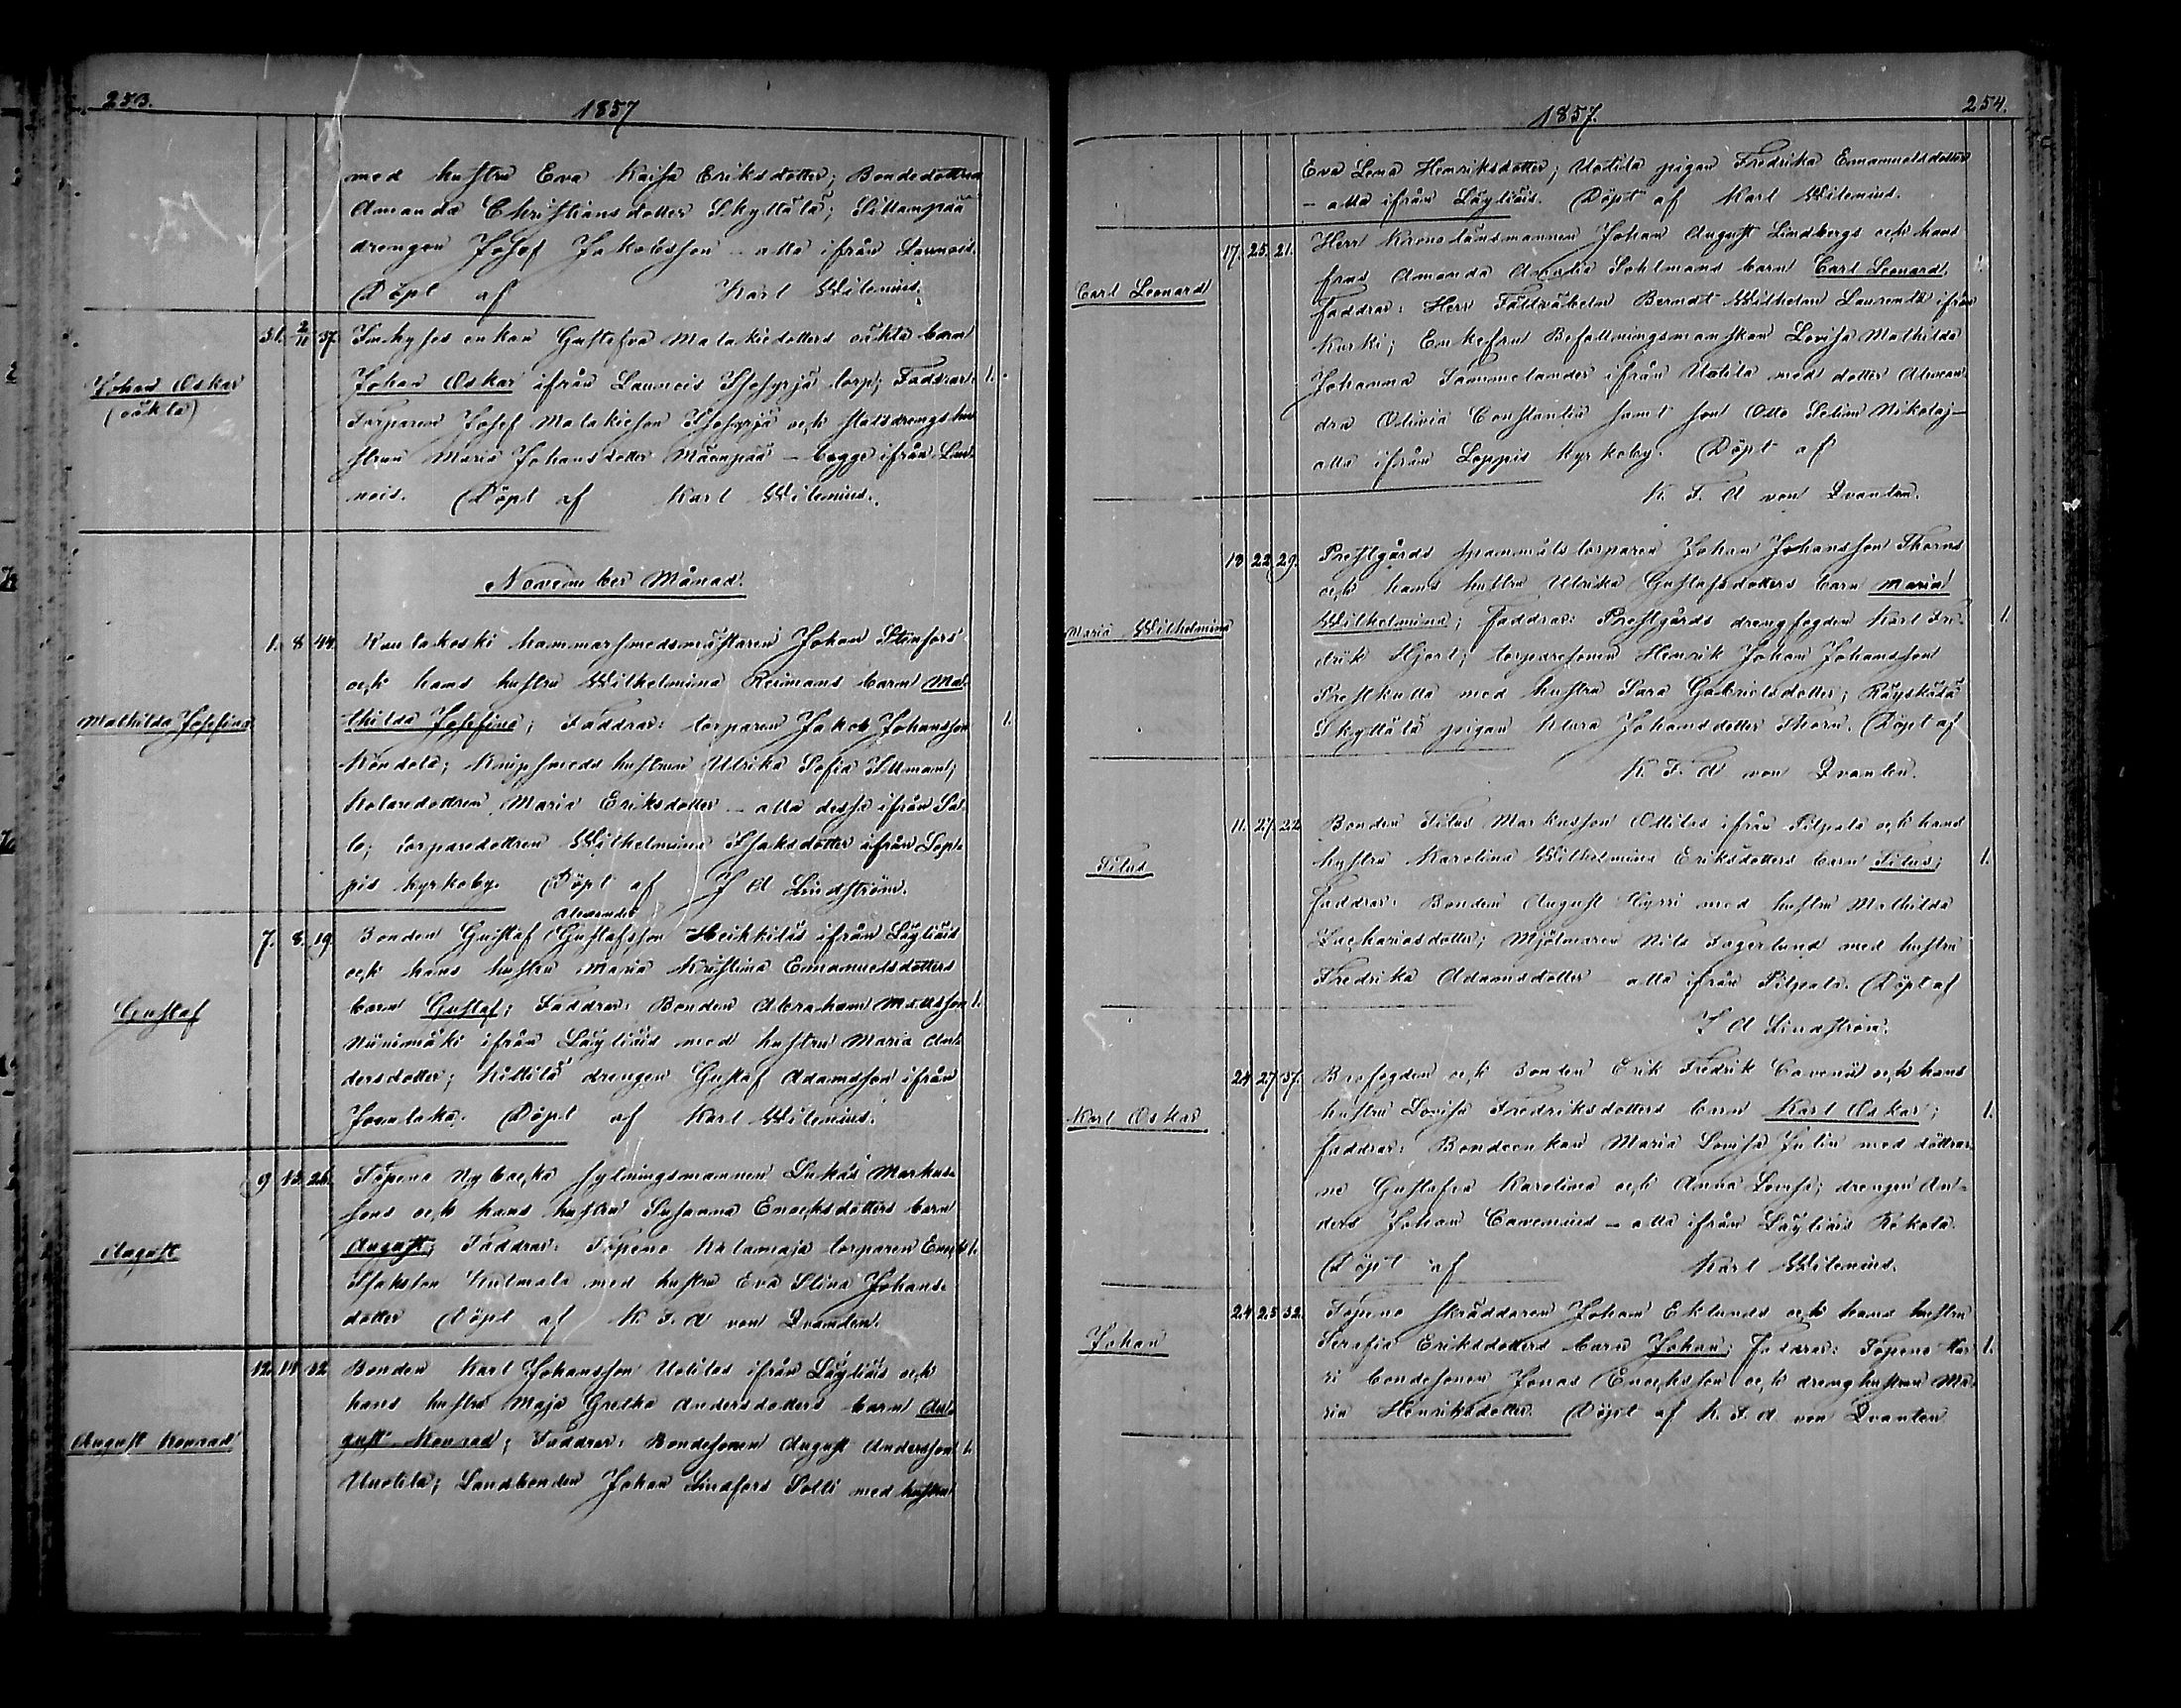 253.
1857
med hustru Eva Kaisa Eriksdotter; Bondedottren
Amanda Christiansdotter Skyttälä; Sillanpää
drengen Josef Jakobsson – alla ifrån Launois.
Döpt af Karl Wilenius.
Johan Oskar
(oäkta)
31. 2/11 37. Inhyses enkan Gustafva Malakiedotters oäkta barn
Johan Oskar ifrån Launois torp; Faddrar: 1.
Torparen Josef Malakieson och statsdrengs hu-
strun Maria Johansdotter Mäenpää – begge ifrån Lau-
nois. Döpt af Karl Wilenius.
November Månad.
Mathilda Josefina
1. 8 44. Kaulakoski hammarsmedsmästaren Johan Stenfors
och hans hustru Wilhelmina Reimans barn Mat-
hilda Josefina; Faddrar: torparen Jakob Johansson 1.
Kondola; Knipsmeds hustrun Ulrika Sofia Illman;
Kolaredottren Maria Eriksdotter – alla dessa ifrån Sa-
lo; torparedottren Wilhelmina Isaksdotter ifrån Lop-
pis kyrkoby. Döpt af J A Lindström.
Gustaf
Alexander
7. 8. 19. Bonden Gustaf Gustafsson Heikkiläs ifrån Läyliäis
och hans hustru Maria Kristina Emanuelsdotters
barn Gustaf; Faddrar: Bonden Abraham Mattsson 1.
Niinimäki ifrån Läyliäis med hustru Maria An-
dersdotter; Kittilä drengen Gustaf Adamsson ifrån
Joentaka. Döpt af Karl Wilenius.
August
9 15. 26. Topeno Nybacka sytningsmannen Lukas Markus-
sons och hans hustru Susanna Enochsdotters barn
August; Faddrar: Topeno torparen Enoch 1.
Isaksson med hustru Eva Stina Johans-
dotter Döpt af K. F. A von Qvanten.
August Konrad
12. 14 32 Bonden Karl Johansson Uotilas ifrån Läyliäis och
hans hustru Maja Gretha Andersdotters barn Au-
gust Konrad; Faddrar: Bondesonen August Andersson 1.
Uuotila; Landbonden Johan Lindfors Sotti med hustru
1857.
254.
Eva Lena Henriksdotter; Uotila pigan Fredrika Emanuelsdotter
– alla ifrån Läyliäis. Döpt af Karl Wilenius.
Carl Leonard
17. 25. 21. Herr Kronolänsmannen Johan August Lindbergs och hans
fru Amanda Amalia Sohlmans barn Carl Leonard, 1.
Faddrar: Herr Fältväbeln Berndt Wilhelm Laurentz ifrån
Kurki; Enkefru Befallningsmanskan Lovisa Mathilda
Johanna Tammelander ifrån Uotila med dotter Alexan-
dra Olivia Constantia samt son Otto Selim Nikolaj –
alla ifrån Loppis Kyrkoby. Döpt af
K. F. A von Qvanten.
Maria Wilhelmina
18 22 29. Prestgårds spannmåls torparen Johan Johansson Thorns
och hans hustru Ulrika Gustafsdotters barn Maria
Wilhelmina; faddrar: Prestgårds drengfogden Karl Fre- 1.
drik Hjort; torparesonen Henrik Johan Johansson
Prestkulla med hustru Sara Gabrielsdotter; Räyskälä
Skyttälä pigan Klara Johansdotter Thorn. Döpt af
K. F. A von Qvanten.
Titus
11. 27. 22 Bonden Titus Markusson Ottilas ifrån Pilpala och hans
hustru Karolina Wilhelmina Eriksdotters barn Titus; 1.
faddrar: Bonden August Hyrri med hustru Mathilda
Zachariasdotter; Mjölnaren Nils Fagerlund med hustru
Fredrika Adamsdotter – alla ifrån Pilpala. Döpt af
J A Lindström.
Karl Oskar
24. 27. 37. Brofogden och Bonden Erik Fredrik Cavenii och hans
hustru Lovisa Fredriksdotters barn Karl Oskar; 1.
faddrar: Bondeenkan Maria Lovisa Julin med döttrar-
ne Gustafva Karolina och Anna Lovisa; drengen An-
ders Johan Cavenius – alla ifrån Läyliäis Kokola.
Döpt af Karl Wilenius.
Johan
24. 25 32. Topeno skräddaren Johan Eklunds och hans hustru
Serafia Eriksdotters barn Johan; Faddrar: Topeno Har- 1.
ri bondesonen Jonas Enochsson och drenghustrun Ma-
ria Henriksdotter. Döpt af K. F. A von Qvanten